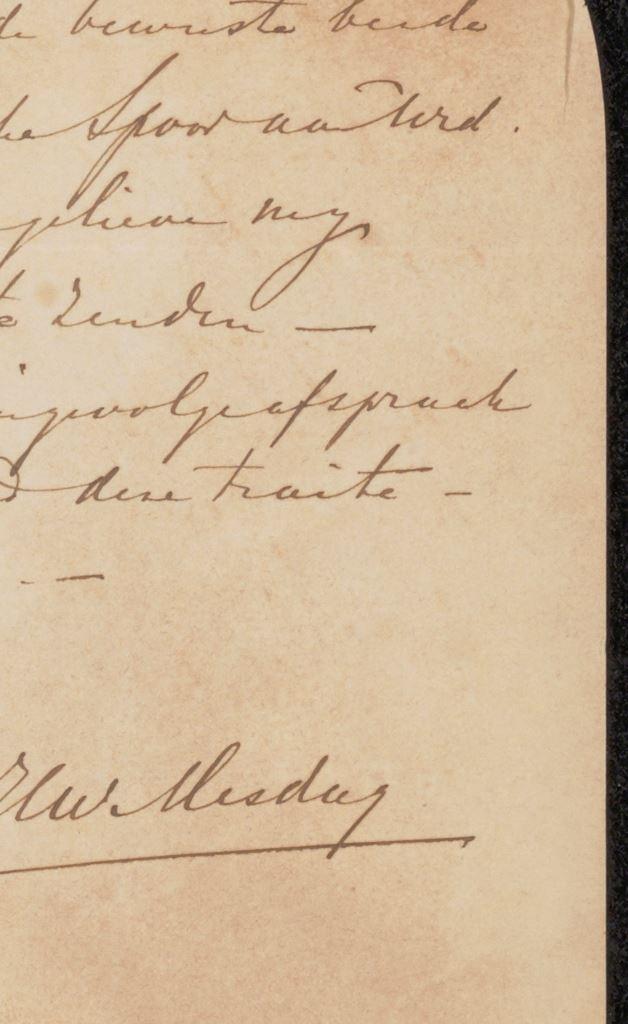 de bewuste beide
Spoor aan Uwd.
gelieve mij
te zenden —
ingevolge afspraak
deze traite —
—
HW Mesdag